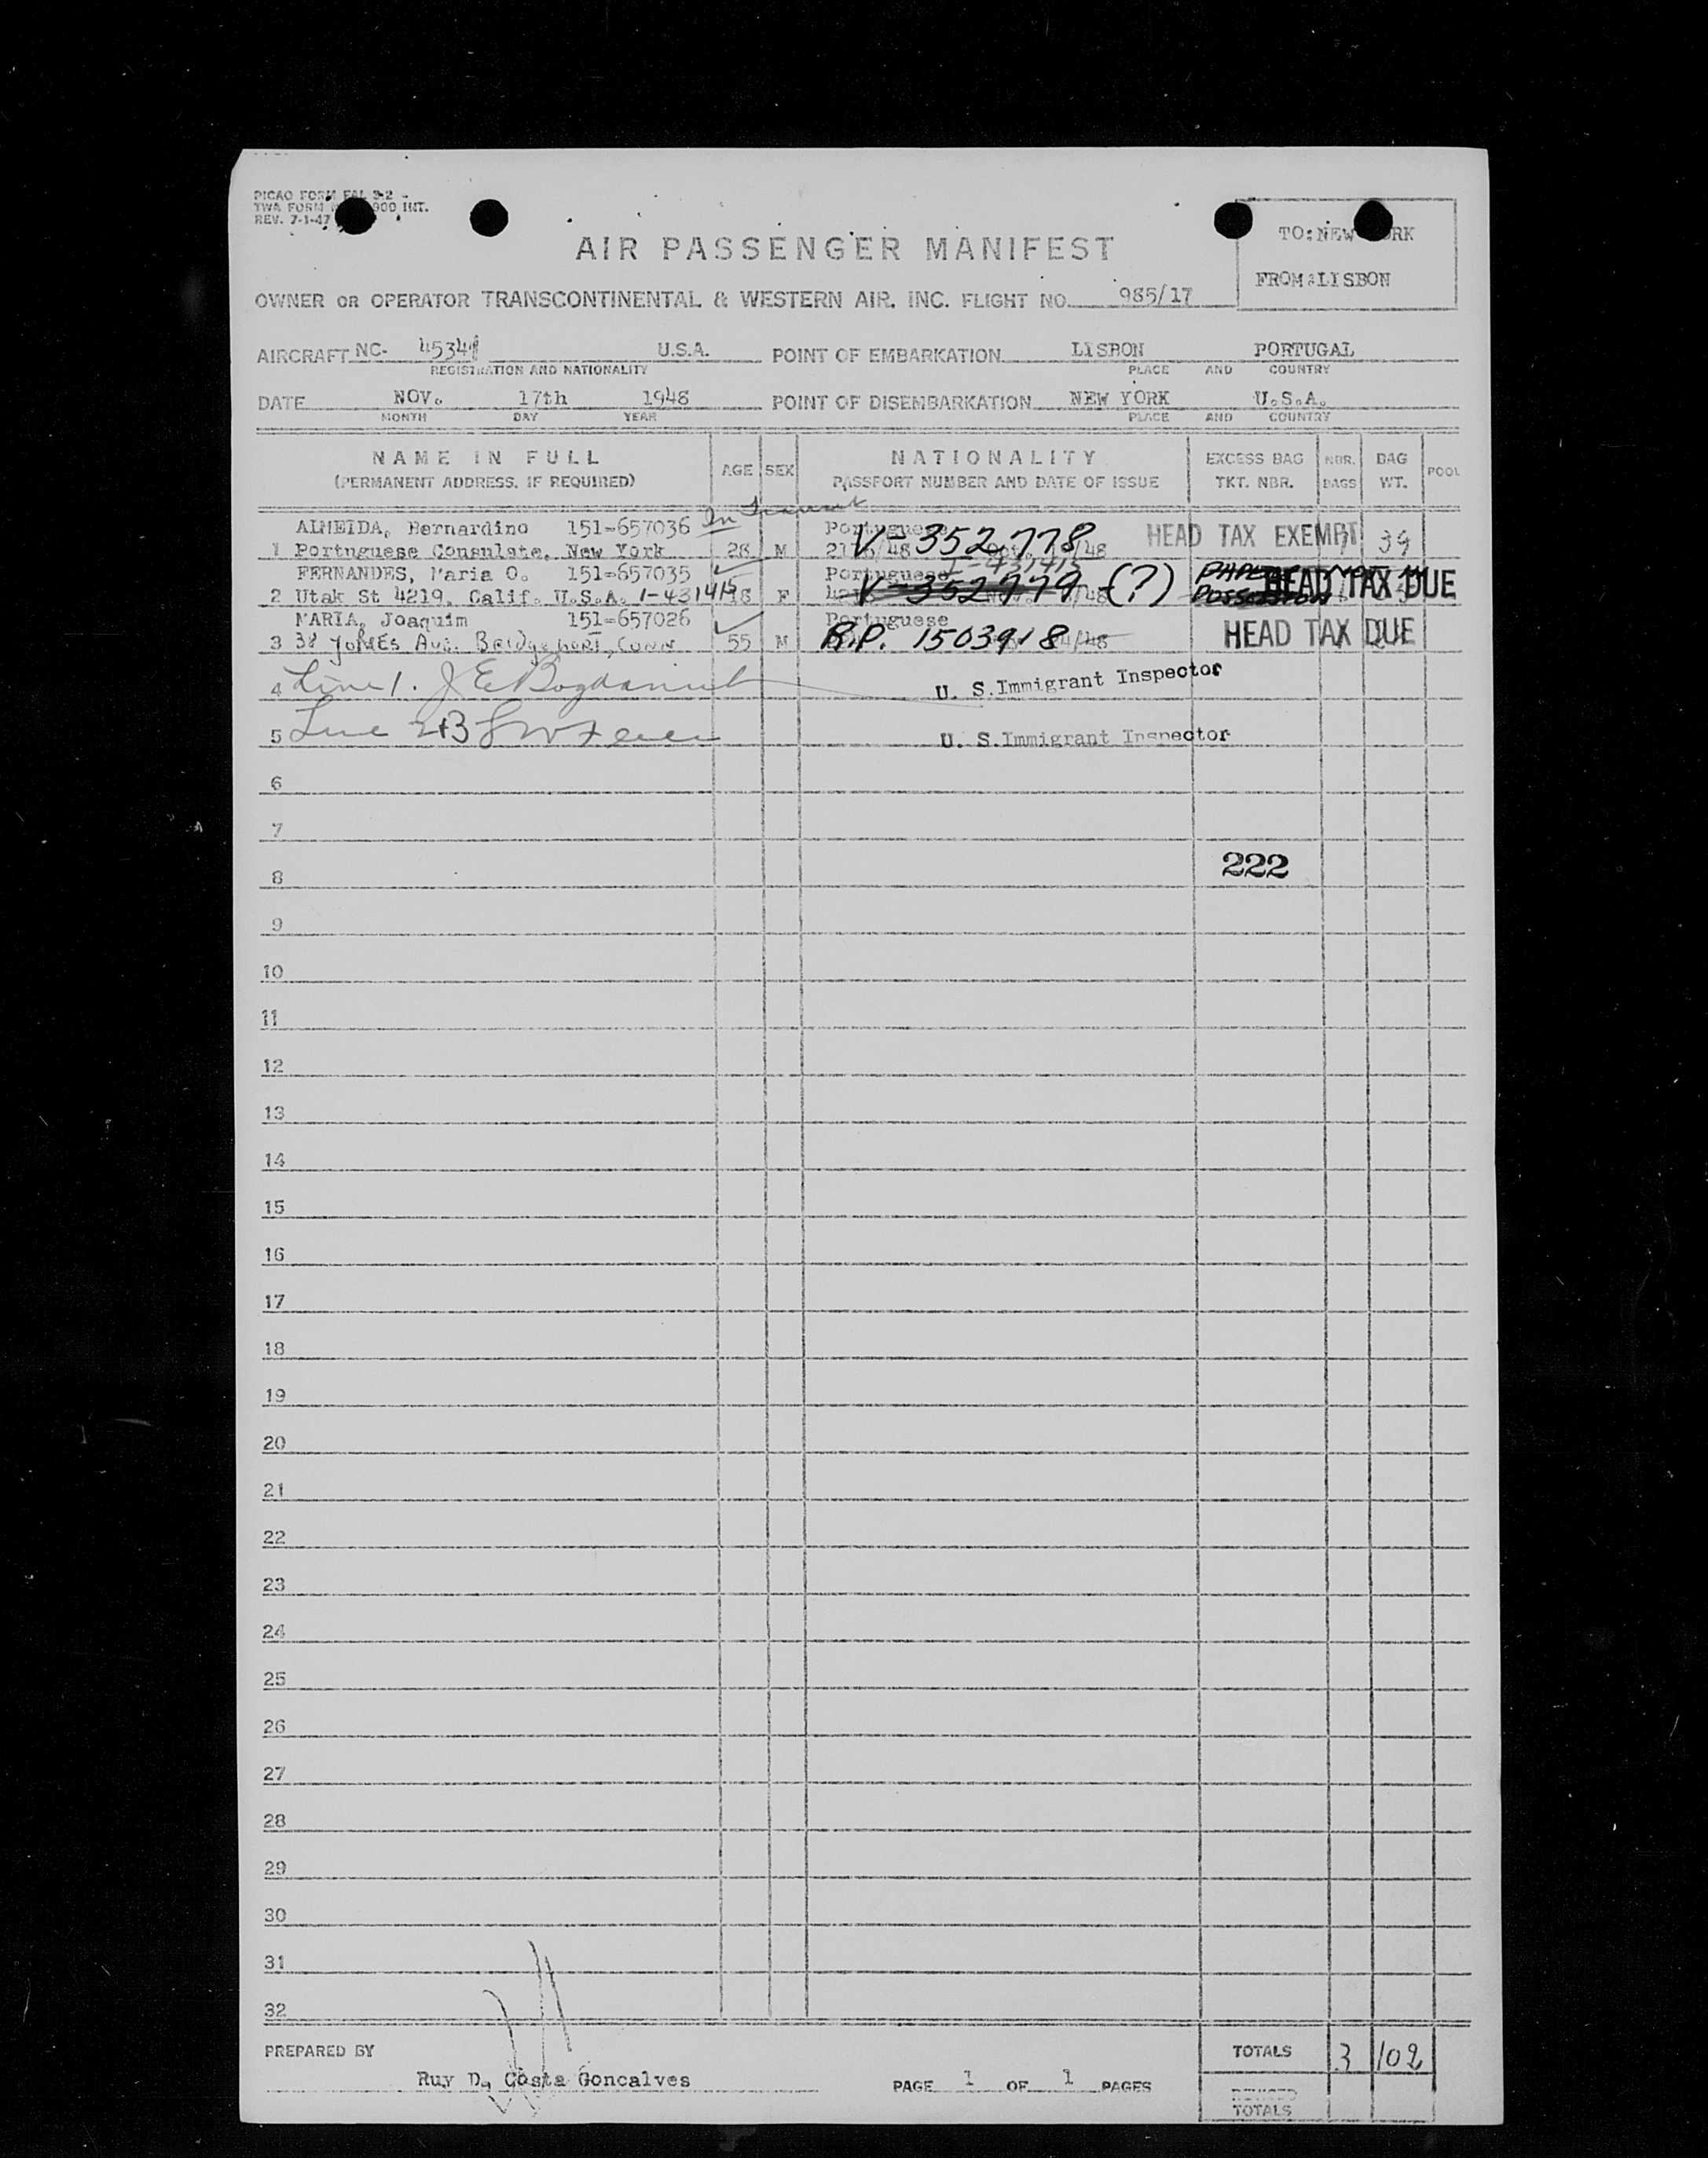 PICAO FORM FAL 3-2
TWA FORM 900 INT.
REV. 7-1-47
AIR PASSENGER MANIFEST
TO: NEW YORK
FROM: LISBON
OWNER OR OPERATOR TRANSCONTINENTAL & WESTERN AIR, INC. FLIGHT NO. 985/17
AIRCRAFT NC- U.S.A. POINT OF EMBARKATION LISBON PORTUGAL
REGISTRATION AND NATIONALITY PLACE AND COUNTRY
DATE NOV. 17th 1948 POINT OF DISEMBARKATION NEW YORK U.S.A.
MONTH DAY YEAR PLACE AND COUNTRY
NAME IN FULL AGE SEX NATIONALITY EXCESS BAG NBR. BAG POOL
(PERMANENT ADDRESS, IF REQUIRED) PASSPORT NUMBER AND DATE OF ISSUE TKT. NBR. BAGS WT.
In Transit
ALMEIDA, Bernardino 151-657036 Portuguese V-352778 HEAD TAX EXEMPT 39
1 Portuguese Consulate, New York 28 M /48
FERNANDES, Maria O. 151-657035 Portuguese I-431415
2 Utak St 4219, Calif. U.S.A. 1-431415 18 F V-352779 (?) HEAD TAX DUE
MARIA, Joaquim 151-657026 Portuguese
3 38 JONES Ave. Bridgeport, Conn 55 M R.P. 1503918 /48 HEAD TAX DUE
4 Line 1. J E U. S. Immigrant Inspector
5 Line 2+3 U. S. Immigrant Inspector
6
7
222
8
9
10
11
12
13
14
15
16
17
18
19
20
21
22
23
24
25
26
27
28
29
30
31
32
PREPARED BY TOTALS 3 102
Ruy D. Costa Goncalves PAGE 1 OF 1 PAGES
REVISED
TOTALS